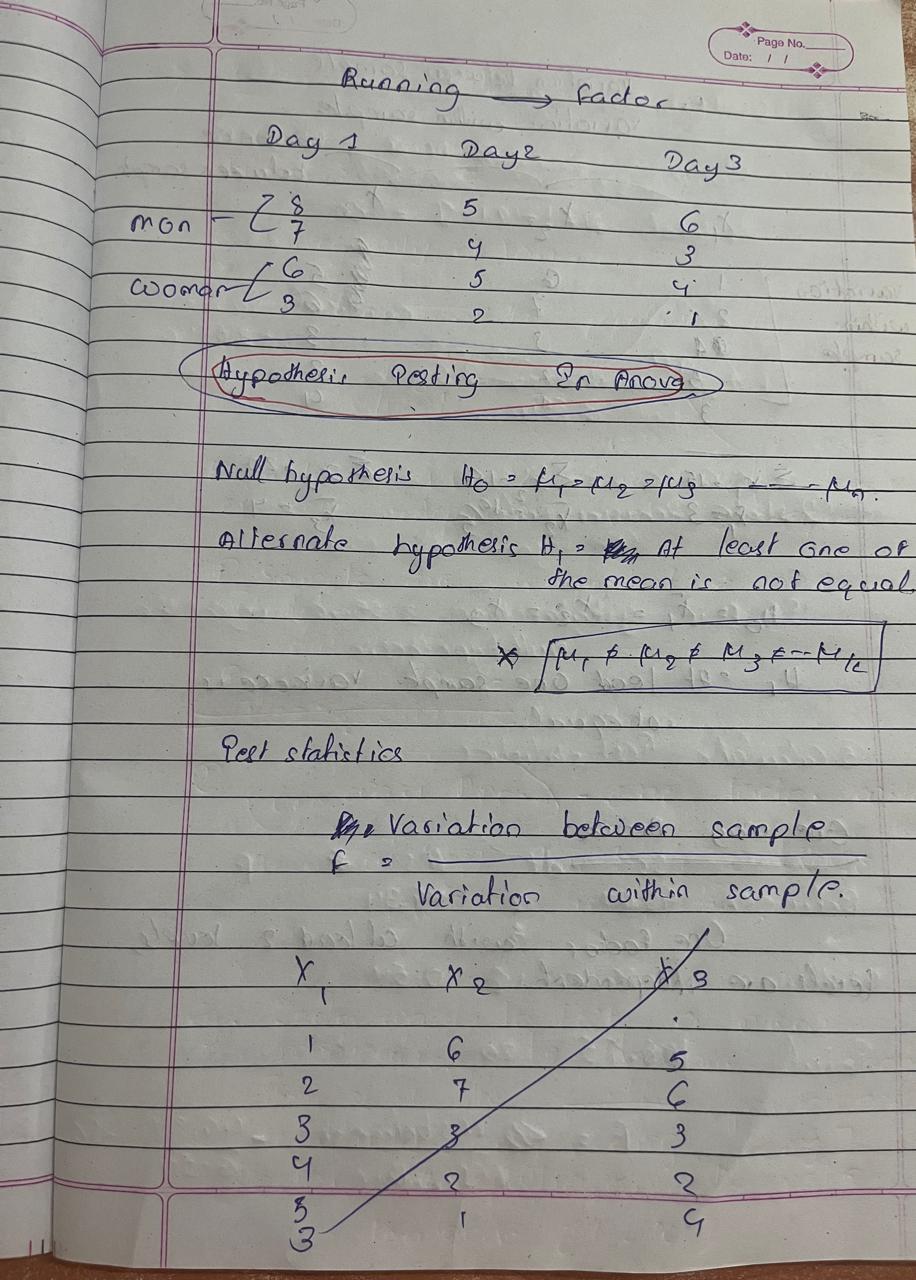 Page No.
Date: / /
Running → factor
Day 1 Day2 Day3
8 5 6
man - [ 7 4 3
6 5 4
woman [ 3 2 1
Hypothesis Testing In Anova
Null hypothesis H0 = μ1 = μ2 = μ3 ---- μn.
Alternate hypothesis H1 = At least one of
the mean is not equal
* μ1 ≠ μ2 ≠ μ3 ≠ -- μk
Test statistics
Variation between sample
F =
Variation within sample.
X1 X2 X3
1 6 5
2 7 6
3 3 3
4 2 2
5 1 4
3